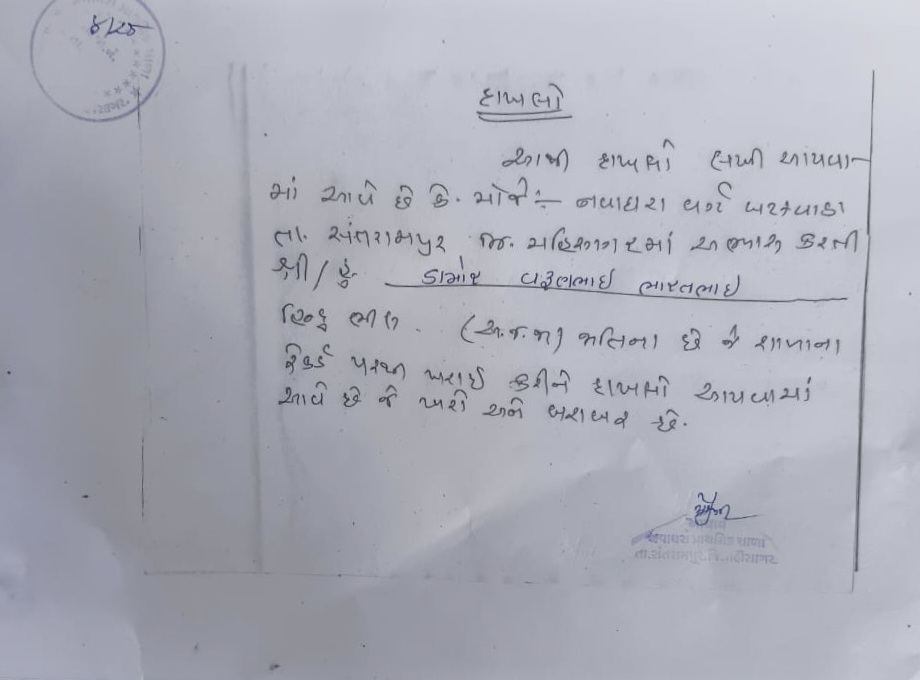 દાખલો
આથી દાખલો લખી આપવા-
માં આવે છે કે. મોજે:- નવાઘરા વર્ગ
તા. સંતરામપુર જી. મહિસાગરમાં અભ્યાસ કરતી
શ્રી/કુ. ડામોર ભારતભાઇ
હિન્દુ ભીલ. (અ.જ.જા) જાતિના છે જે શાળાના
રેકર્ડ પરથી ખરાઈ કરીને દાખલો આપવામાં
આવે છે જે ખરો અને બરાબર છે.
આચાર્ય
નવાઘરા પ્રાથમિક શાળા
તા.સંતરામપુર,જિ.મહીસાગર